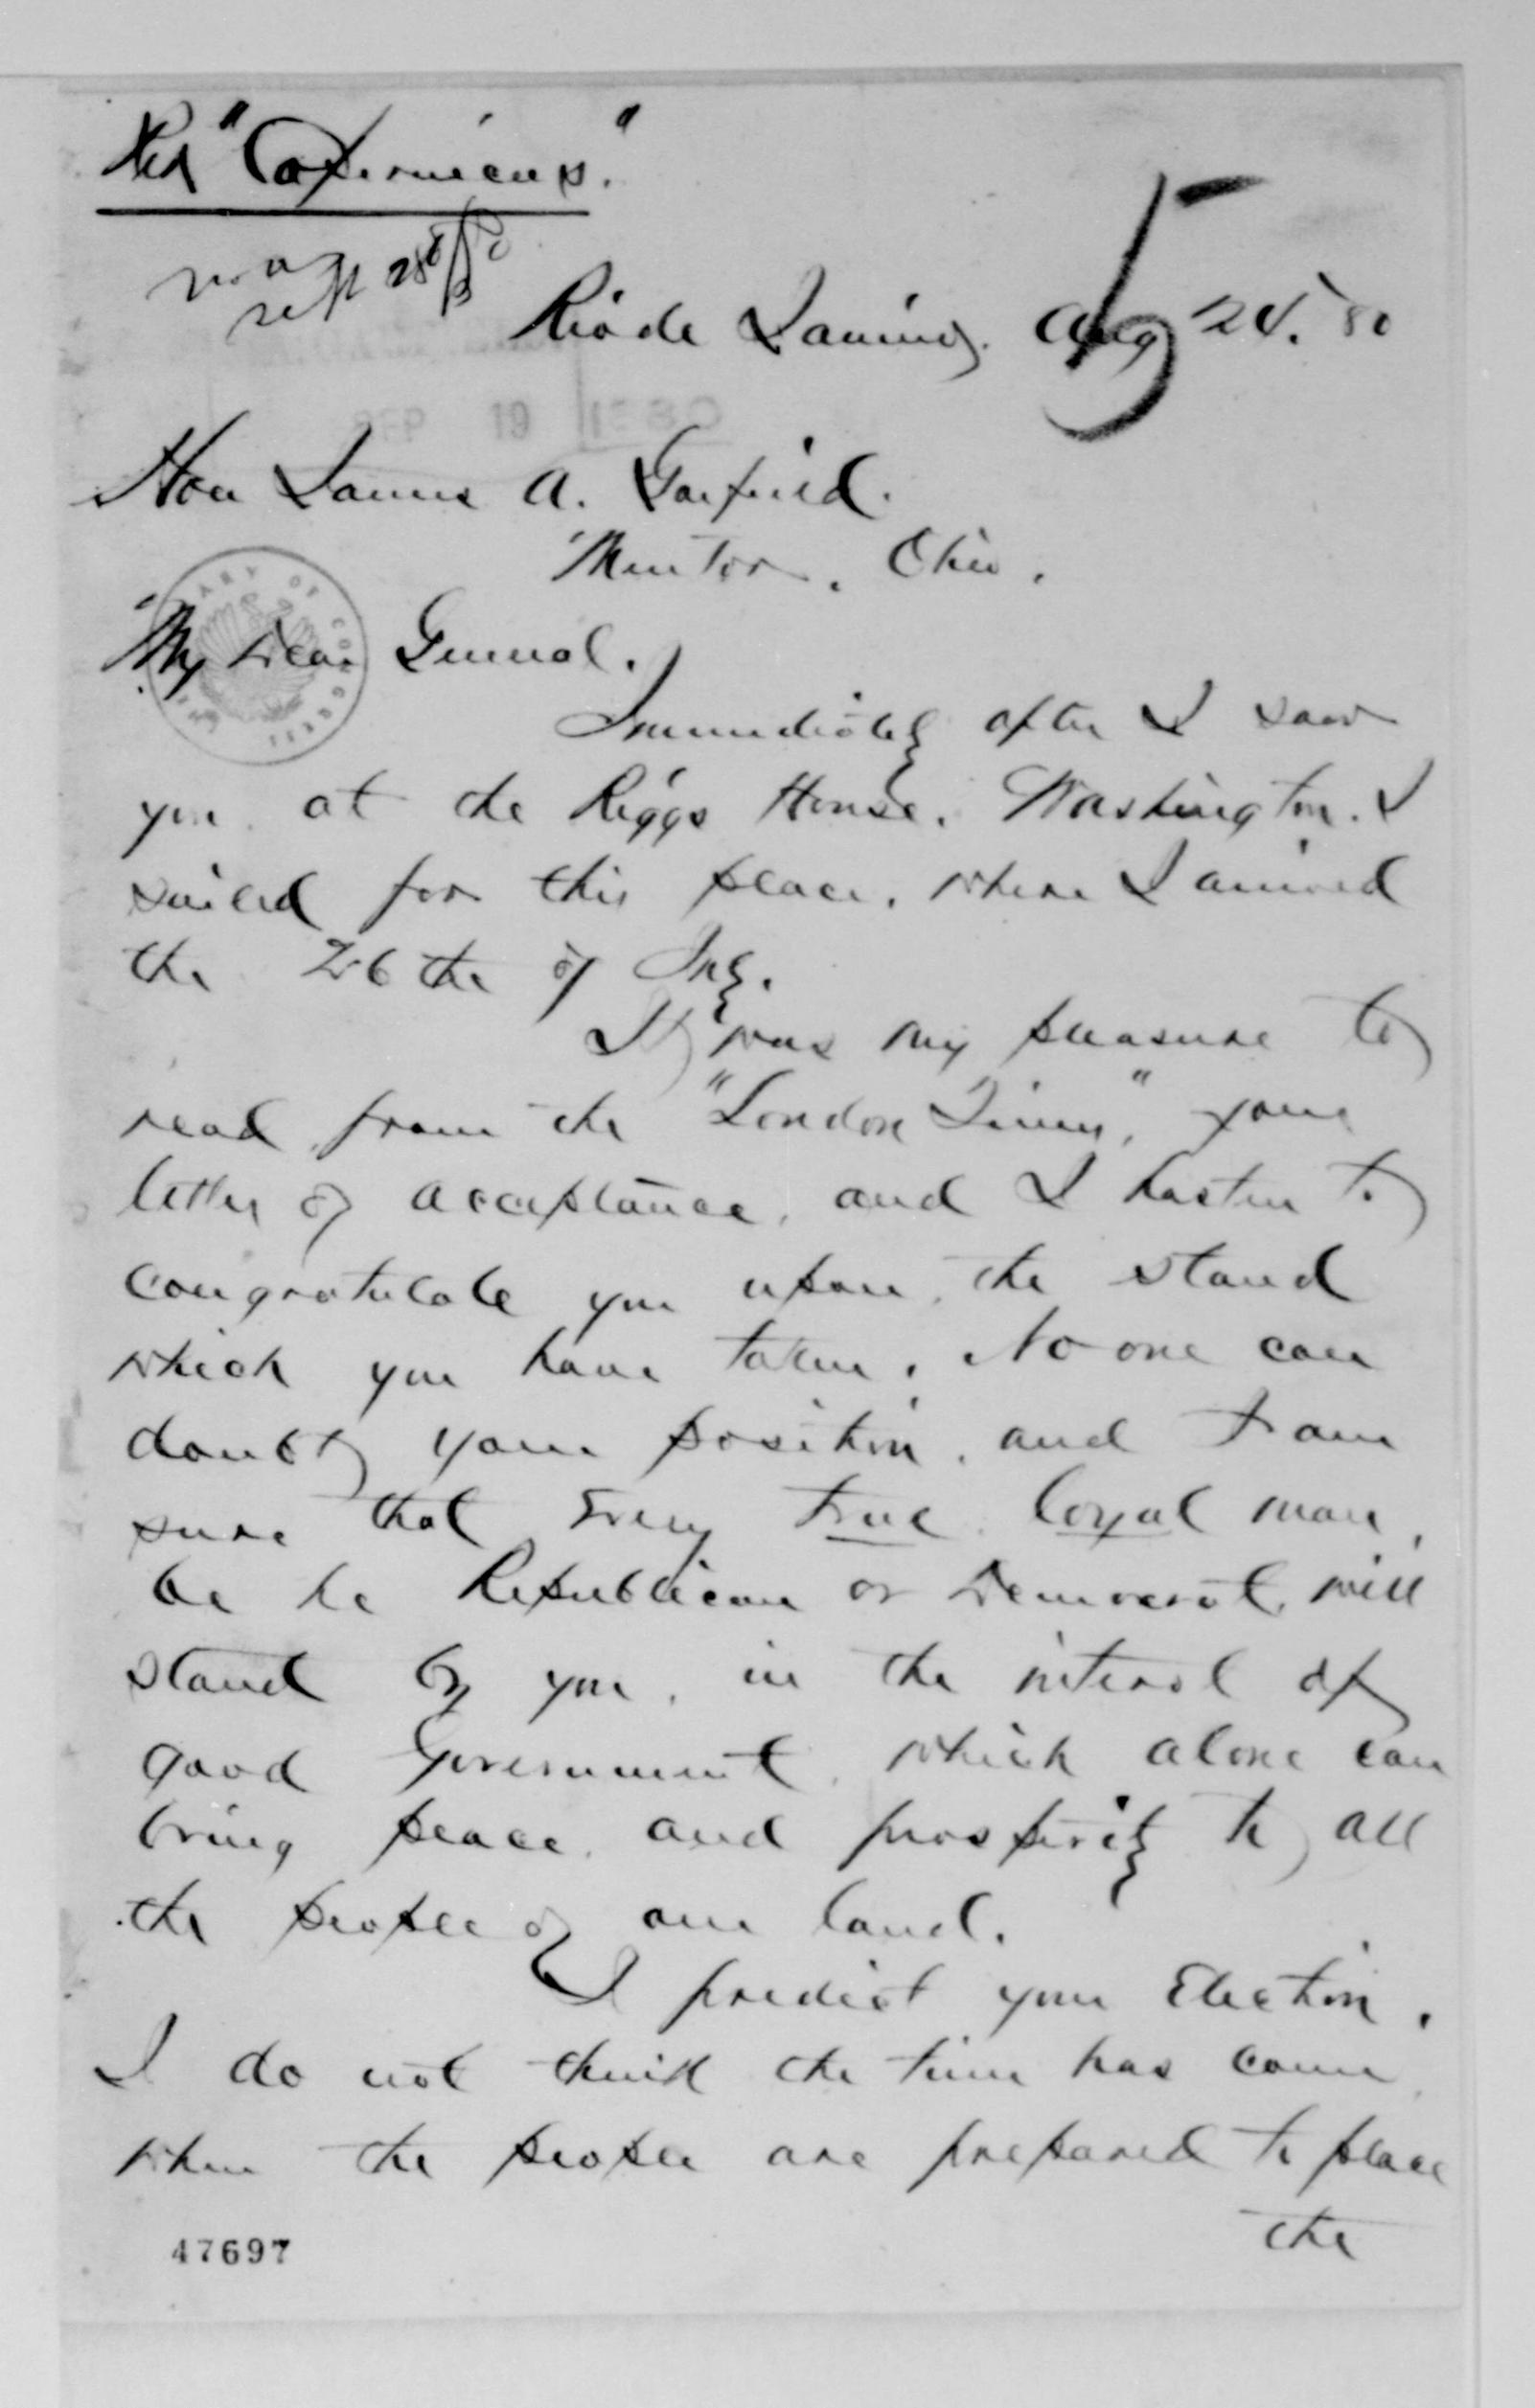 Per "Copernicus."
Sept 28th/80
5
Rio de Janeiro. Aug 24. 80
SEP 19 1880
Hon James A. Garfield.
Mentor, Ohio.
My Dear General.
LIBRARY OF CONGRESS
Immediately after I saw
you at the Riggs House, Washington. I
sailed for this place, where I arrived
the 26th of July.
It was my pleasure to
read from the "London Times," your
letter of acceptance, and I hasten to
congratulate you upon the stand
which you have taken. No one can
doubt your position, and I am
sure that Every true loyal man,
be he Republican or Democrat, will
stand by you, in the interest of
good Government, which alone can
bring peace, and prosperity to all
the people of our land.
I predict your Election.
I do not think the time has come
when the people are prepared to place
the
47697